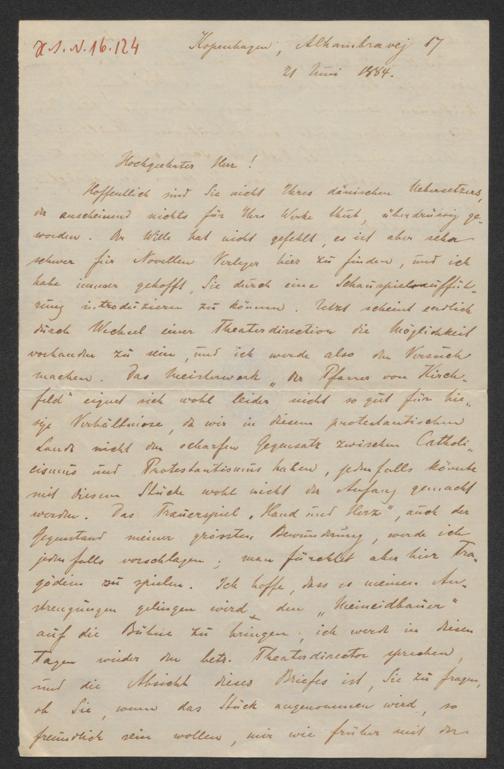 H.I.N. 16.124
Kopenhagen, Alhambravej 17
21 Juni 1884.
Hochgeehrter Herr!
Hoffentlich sind Sie nicht Ihres dänischen Uebersetzers,
der anscheinend nichts für Ihre Werke thut, überdrüssig ge-
worden. Der Wille hat nicht gefehlt, es ist aber sehr
schwer für Novellen Verleger hier zu finden, und ich
habe immer gehofft, Sie durch eine Schauspielaufführ-
rung introduzieren zu können. Jetzt scheint endlich
durch Wechsel einer Theaterdirection die Möglichkeit
vorhanden zu sein, und ich werde also den Versuch
machen. Das Meisterwerk „Der Pfarrer von Kirch-
feld" eignet sich wohl leider nicht so gut für hie-
sige Verhältnisse, da wir in diesem protestantischen
Lande nicht den scharfen Gegensatz zwischen Catholi-
cismus und Protestantismus haben, jedenfalls könnte
mit diesem Stücke wohl nicht der Anfang gemacht
werden. Das Trauerspiel „Hand und Herz", auch der
Gegenstand meiner grössten Bewunderung, werde ich
jedenfalls vorschlagen; man fürchtet aber hier Tra-
gödien zu spielen. Ich hoffe, dass es meinen An-
strengungen gelingen wird, den „Meineidbauer"
auf die Bühne zu bringen; ich werde in diesen
Tagen wieder den betr. Theaterdirector sprechen,
und die Absicht dieses Briefes ist, Sie zu fragen,
ob Sie, wenn das Stück angenommen wird, so
freundlich sein wollen, mir wie früher mit der